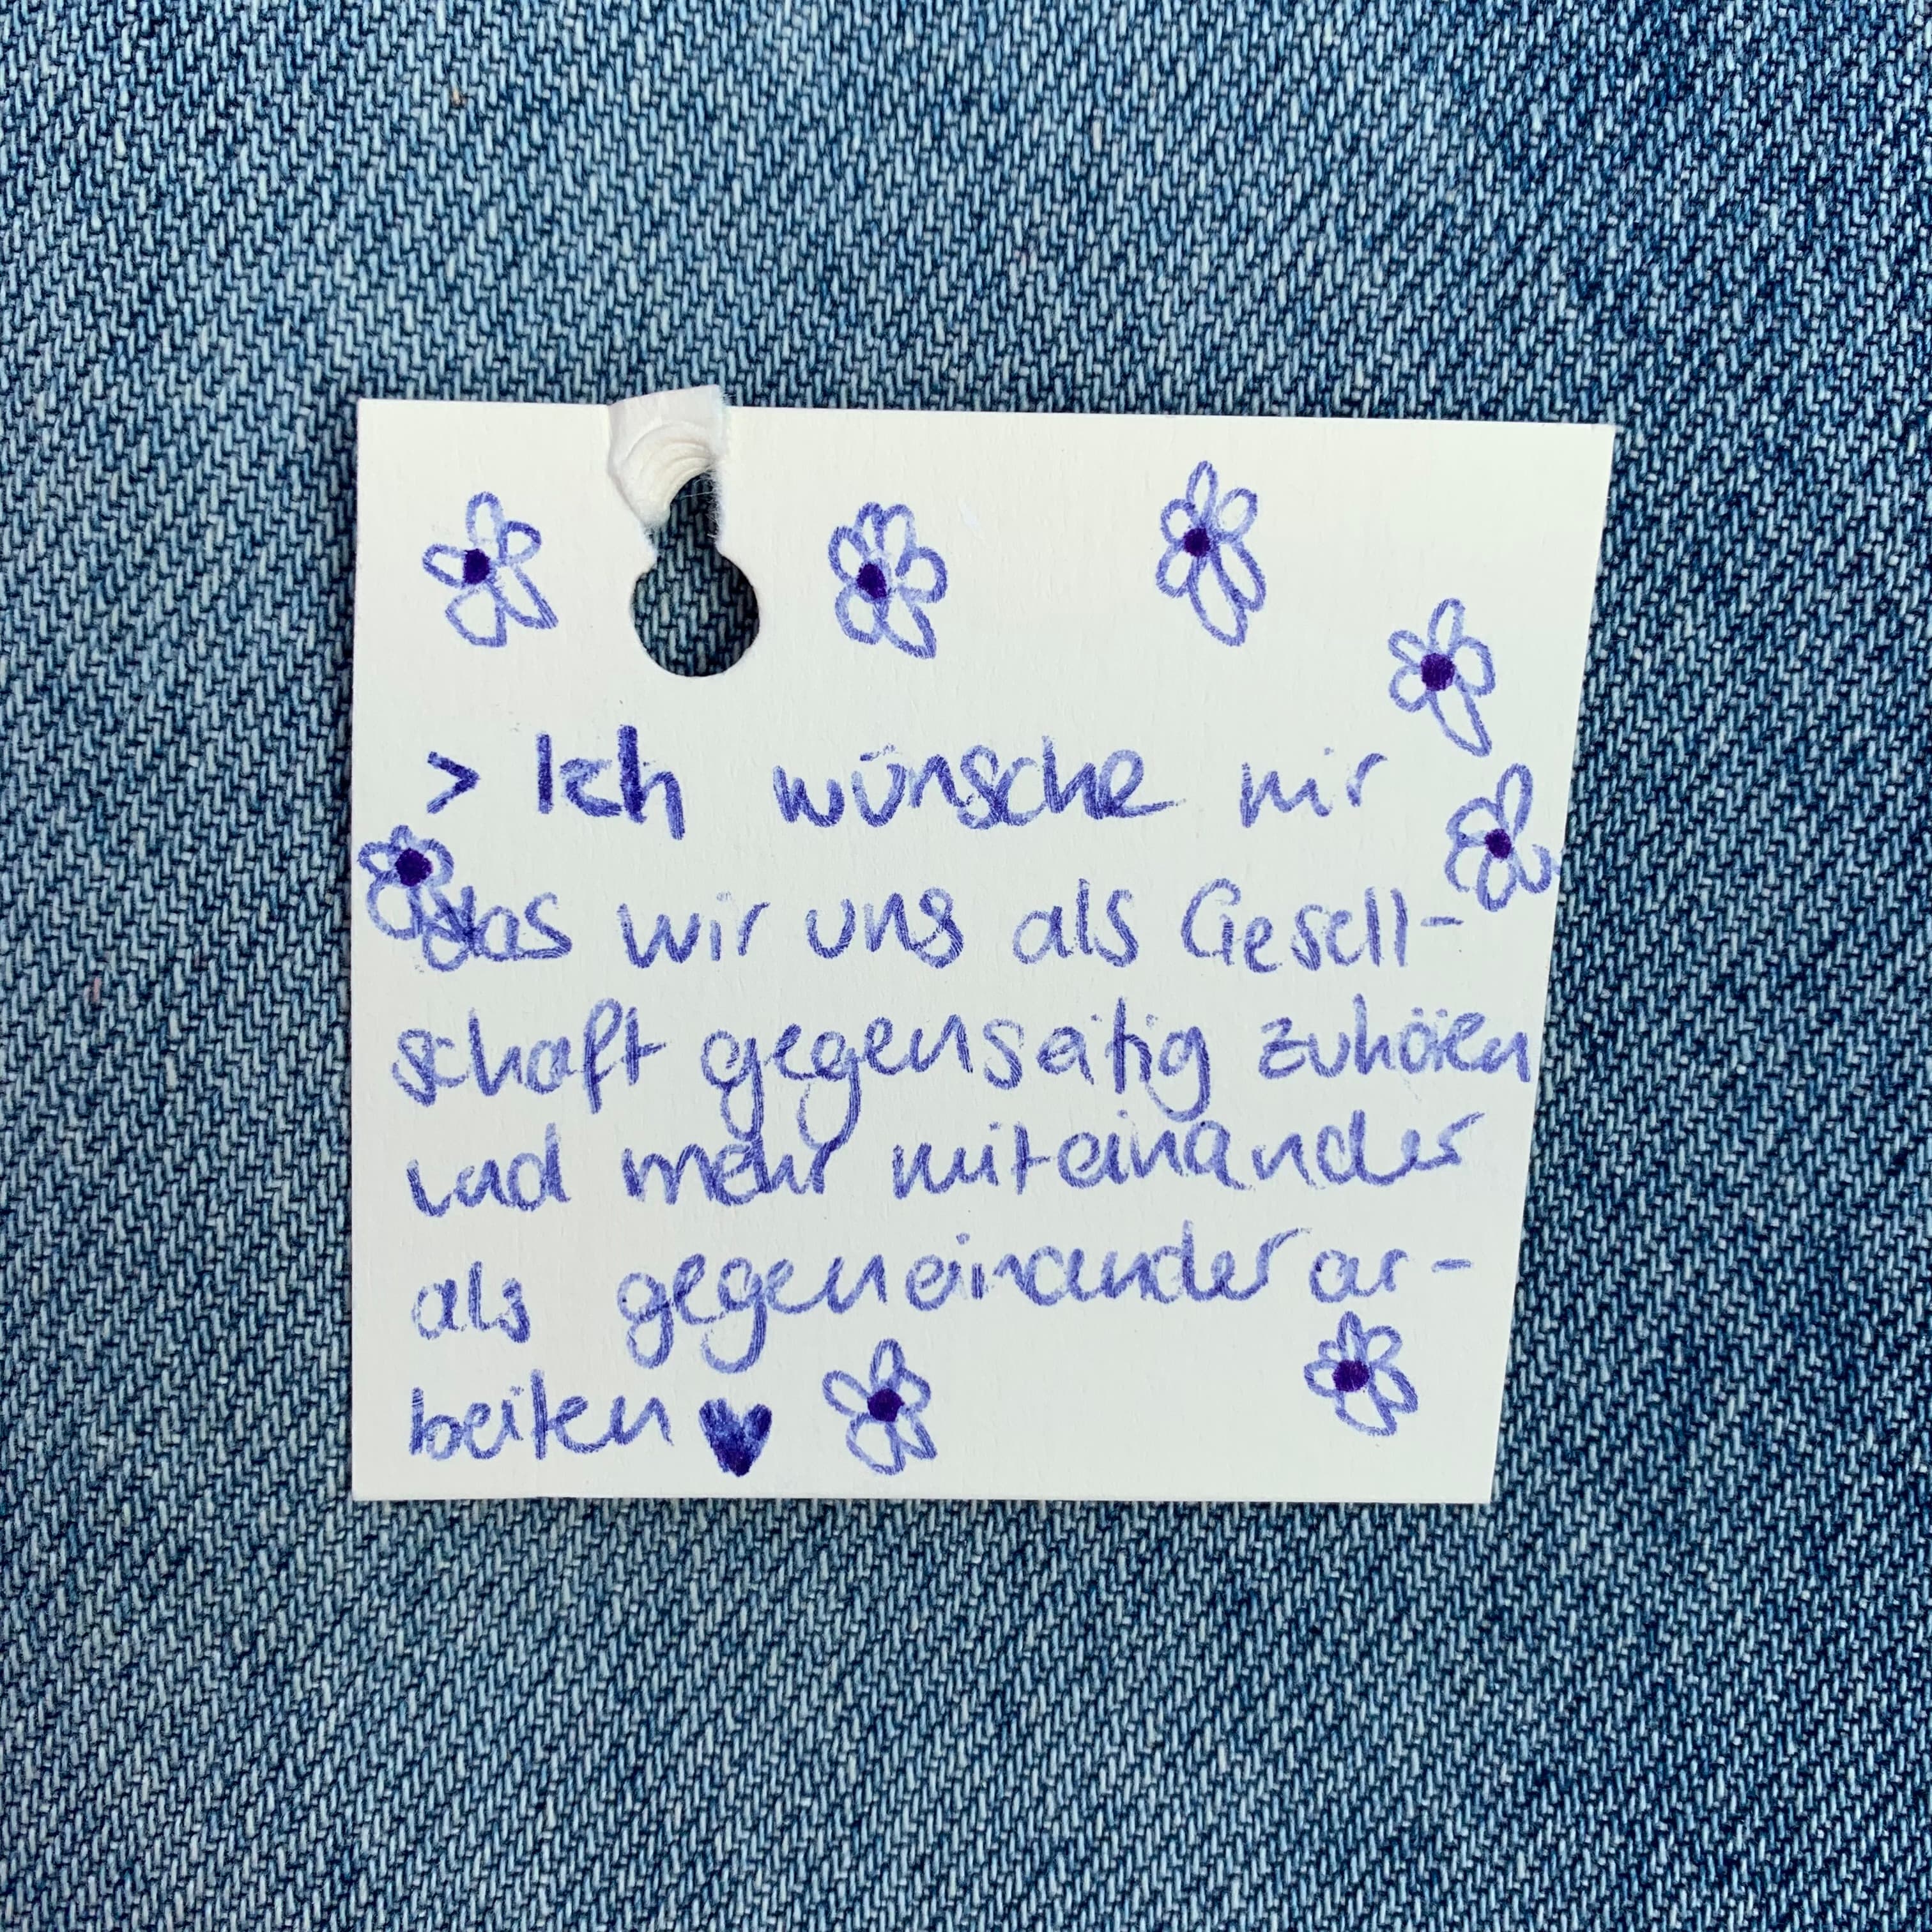 > Ich wünsche mir
das wir uns als Gesell-
schaft gegenseitig zuhören
und mehr miteinander
als gegeneinander ar-
beiten ♥